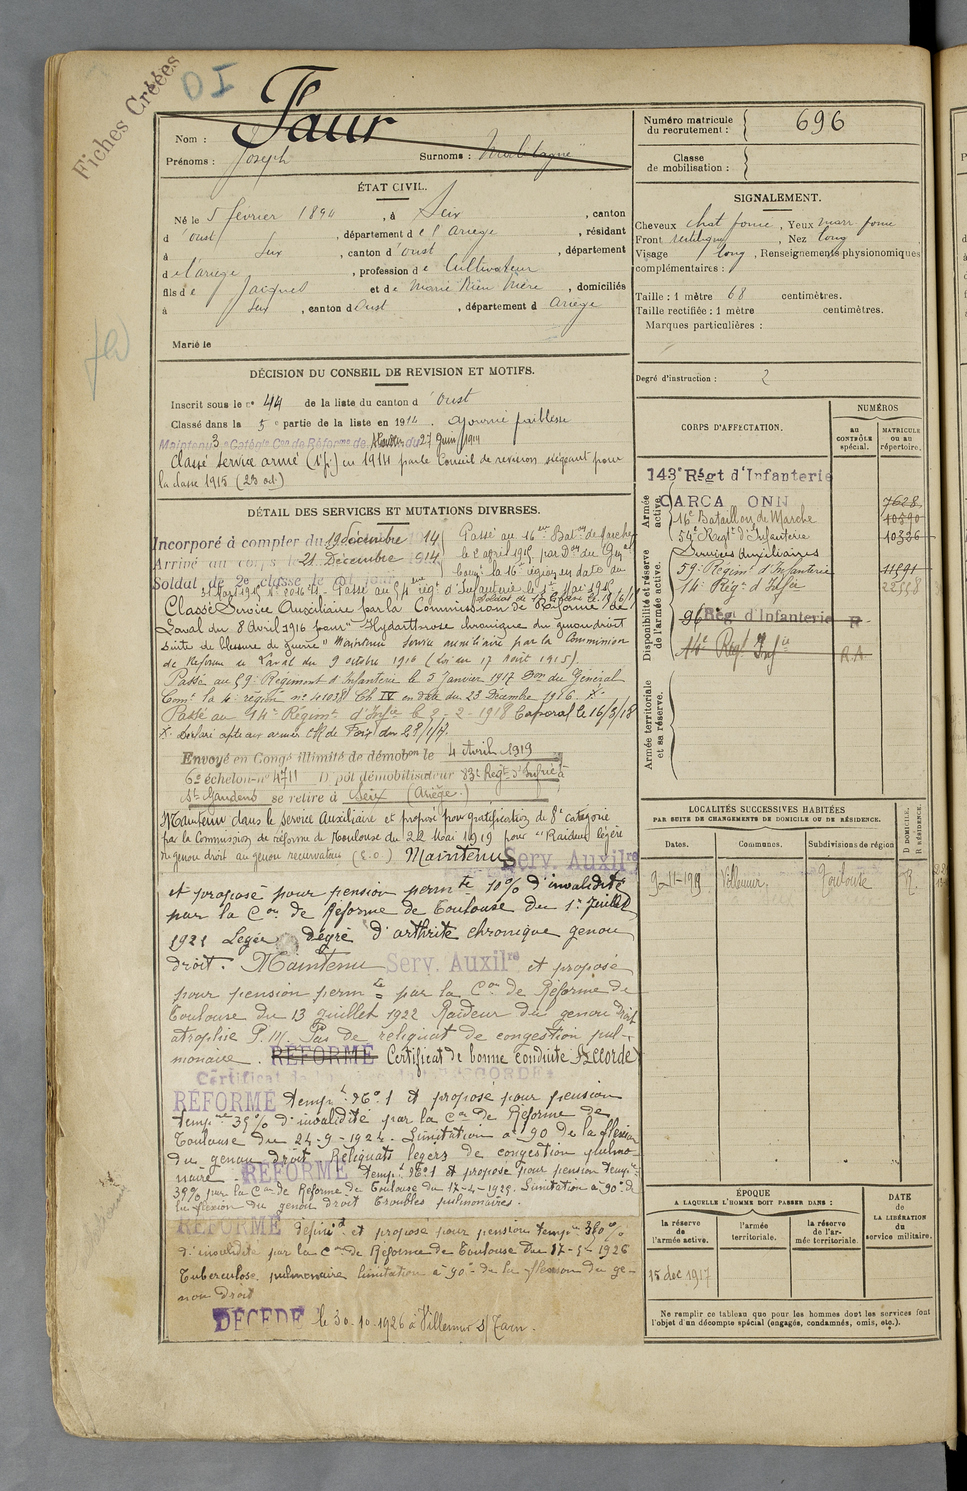 Fiches Créées
OI
Faur
Nom :
Prénoms : Joseph Surnoms :
Numéro matricule du recrutement : 696
Classe de mobilisation :
ÉTAT CIVIL.
Né le 5 février 1894, à Seix, canton
d'oust, département de l'Ariège, résidant
à Seix, canton d'oust, département
de l'ariège, profession de Cultivateur
fils de Jacques et de Marie Rieu Mère, domiciliés
à Seix, canton d'oust, département d Ariège
Marié le
SIGNALEMENT.
Cheveux chat fonce, Yeux marr fonce
Front rectiligne, Nez long
Visage long, Renseignements physionomiques
complémentaires :
Taille : 1 mètre 68 centimètres.
Taille rectifiée : 1 mètre centimètres.
Marques particulières :
Degré d'instruction : 2
DÉCISION DU CONSEIL DE REVISION ET MOTIFS.
Inscrit sous le n° 44 de la liste du canton d'oust
Classé dans la 5e partie de la liste en 1914. ajourné faiblesse
Maintenu 3e Catégie Con de Réforme de du 27 Juin 1914
Classé Service armé en 1914 par le Conseil de revision siégeant pour
la classe 1915 (23 oct.)
DÉTAIL DES SERVICES ET MUTATIONS DIVERSES.
Incorporé à compter du 19 décembre 1914
Arrivé au corps le 21 Décembre 1914
Soldat de 2e classe le dit jour
Passé au 16e Bat.on de Marche
le 2 avril 1915 par Don du Gen.al
Comt la 16e région en date du
31 Mars 1915 Passé au 54e régt d'Infanterie le 1er Mai 1915
Classé Service Auxiliaire par la Commission de Réforme de
Laval du 8 Avril 1916 pour "Hydarthrose chronique du genou droit
suite de blessure de guerre" Maintenu service auxiliaire par la Commission
de Réforme de Laval du 9 octobre 1916 (Loi du 17 Août 1915).
Passé au 59e Régiment d'Infanterie le 5 Janvier 1917 Don du Général
Comt la 4e région n° 41038/Ch IV en date du 23 Décembre 1916. X.
Passé au 14e Régimt d'Infie le 3-2-1918 Caporal le 16/3/18
Envoyé en Congé illimité de démobon le 4 Avril 1919
6e échelon n° 4711 Dépôt démobilisateur 83e Regt d'Infrie à
St Gaudens se retire à Seix (Ariège.)
Maintenu dans le service Auxiliaire et proposé pour gratification de 8e catégorie
par la Commission de réforme de Toulouse du 22 Mai 1919 pour "Raideur légère
du genou droit au genou recurvatum (E.O.) Maintenu Serv. Auxilre
et proposé pour pension permte 10% d'invalidité
par la Con de Réforme de Toulouse du 1er Juillet
1921 Léger degré d'arthrite chronique genou
droit. Maintenu Serv. Auxilre et proposé
pour pension permte par la Con de Réforme de
Toulouse du 13 Juillet 1922 Raideur du genou droit
atrophie Pas de reliquat de congestion pul-
monaire. RÉFORMÉ Certificat de bonne Conduite Accordé
RÉFORMÉ tempt N°1 et proposé pour pension
tempre 35% d'invalidité par la Con de Réforme de
Toulouse du 24-9-1924. Limitation à 90 de la flexion
du genou droit Reliquats légers de congestion pulmo-
naire. RÉFORMÉ tempt N°1 et proposé pour pension tempre
35% par la Con de Réforme de Toulouse du 17-4-1925. Limitation à 90° de
la flexion du genou droit Troubles pulmonaires.
RÉFORMÉ définit et proposé pour pension tempre
d'invalidité par la Con de Réforme de Toulouse du 17-5-1926
Tuberculose pulmonaire limitation à 90° de la flexion du ge-
nou droit
DÉCÉDÉ le 30-10-1926 à Villemur s/Tarn.
CORPS D'AFFECTATION.
NUMÉROS
AU CONTRÔLE spécial.
MATRICULE OU AU répertoire.
Armée active.
143e Régt d'Infanterie
CARCA ONN 7628
16e Bataillon de Marche 10590
54e Régt d'Infanterie 10336
Disponibilité et réserve de l'armée active.
Services Auxiliaires
59e Régimt d'Infanterie 11591
14e Régt d'Infie 22558
96 Rég d'Infanterie R
14e Régt Infie R.A.
Armée territoriale et sa réserve.
LOCALITÉS SUCCESSIVES HABITÉES
PAR SUITE DE CHANGEMENTS DE DOMICILE OU DE RÉSIDENCE.
Dates. Communes. Subdivisions de région D DOMICILE. R RÉSIDENCE.
9-11-1919 Villemur Toulouse R.
ÉPOQUE
A LAQUELLE L'HOMME DOIT PASSER DANS :
la réserve de l'armée active.
l'armée territoriale.
la réserve de l'armée territoriale.
DATE de LA LIBÉRATION du service militaire.
15 dec 1917
Ne remplir ce tableau que pour les hommes dont les services font
l'objet d'un décompte spécial (engagés, condamnés, omis, etc.).